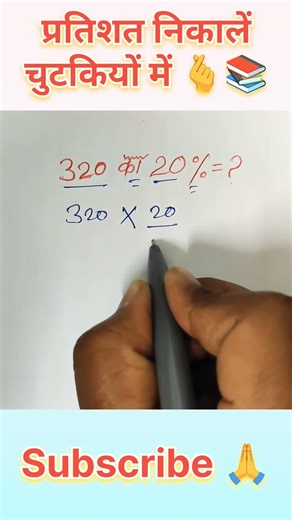 प्रतिशत निकालें
चुटकियों में 🫰📚
320 का 20%=?
320 × 20
Subscribe 🙏